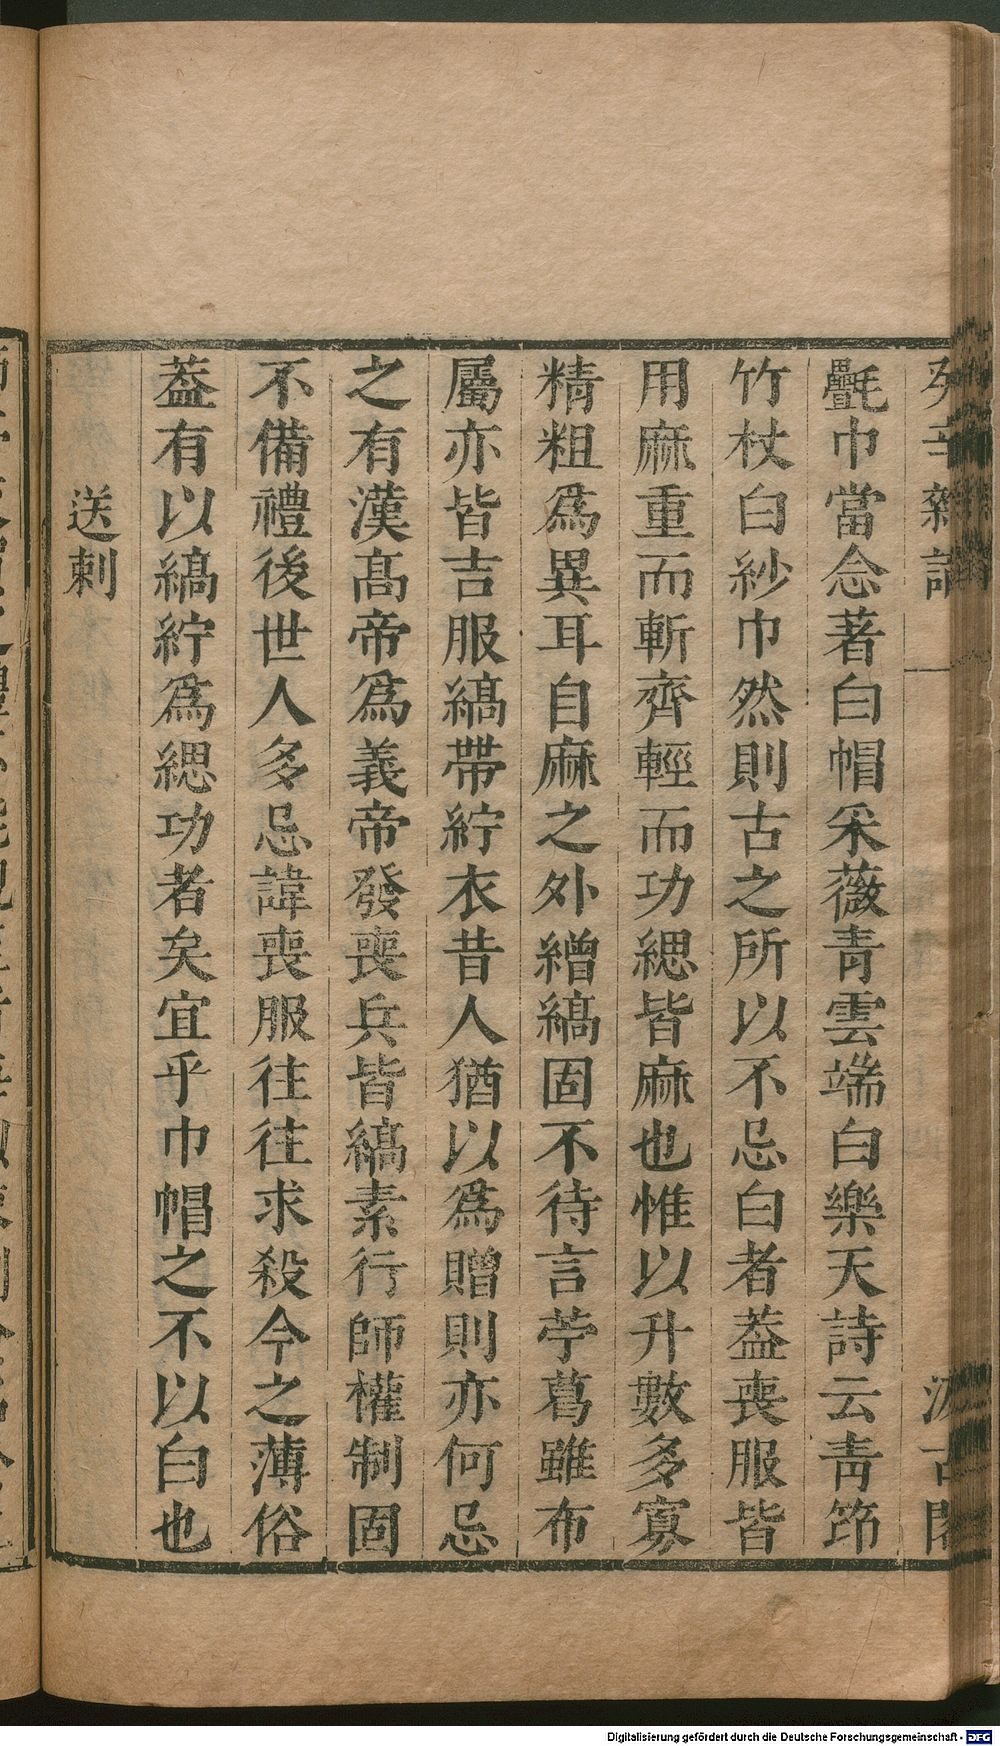 癸辛雜識 一 汲古閣
㲲巾當念著白帽采薇青雲端白樂天詩云青筇
竹杖白紗巾然則古之所以不忌白者葢喪服皆
用麻重而斬齊輕而功緦皆麻也惟以升數多寡
精粗爲異耳自麻之外繒縞固不待言苧葛雖布
屬亦皆吉服縞帶紵衣昔人猶以爲贈則亦何忌
之有漢髙帝爲義帝發喪兵皆縞素行師權制固
不備禮後世人多忌諱喪服往往求殺今之薄俗
葢有以縞紵爲緦功者矣宜乎巾帽之不以白也
送刺
Digitalisierung gefördert durch die Deutsche Forschungsgemeinschaft - DFG